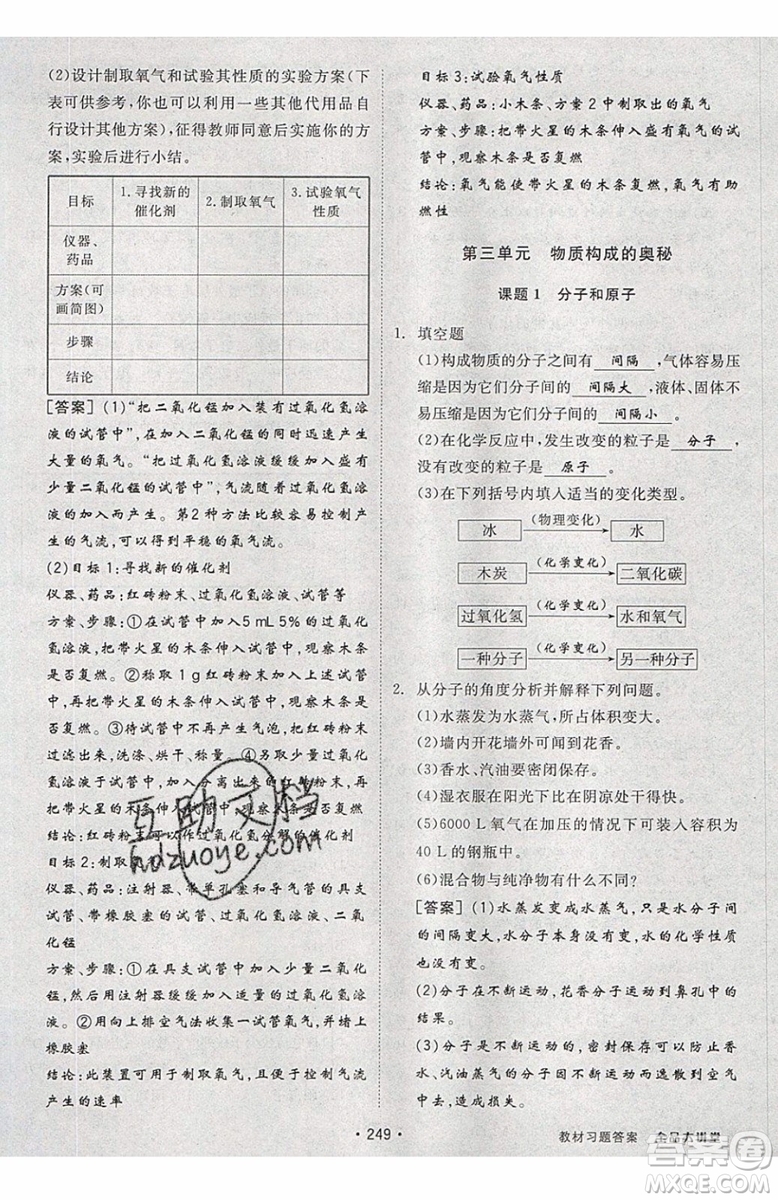 (2)设计制取氧气和试验其性质的实验方案(下
表可供参考,你也可以利用一些其他代用品自
行设计其他方案),征得教师同意后实施你的方
案,实验后进行小结。
目标 1.寻找新的催化剂 2.制取氧气 3.试验氧气性质
仪器、药品
方案(可画简图)
步骤
结论
[答案](1)“把二氧化锰加入装有过氧化氢溶
液的试管中”,在加入二氧化锰的同时迅速产生
大量的氧气。“把过氧化氢溶液缓缓加入盛有
少量二氧化锰的试管中”,气流随过氧化氢溶液
的加入而产生。第2种方法比较容易控制产
生的气流,可以得到平稳的氧气流。
(2)目标1:寻找新的催化剂
仪器、药品:红砖粉末、过氧化氢溶液、试管等
方案、步骤:①在试管中加入5 mL 5%的过氧化
氢溶液,把带火星的木条伸入试管中,观察木条
是否复燃。②称取1 g红砖粉末加入过氧化氢
溶液中,把带火星的木条伸入试管中,观察木条
是否复燃。③待试管中不再产生气泡,把红砖粉末
过滤出来,洗涤、烘干、称量。④另取少量过氧化
氢溶液于试管中,加入分离出来的红砖粉末,
把带火星的木条伸入试管中,观察木条是否复燃
结论:红砖粉末可以作过氧化氢分解的催化剂
目标2:制取氧气
仪器、药品:注射器、带单孔塞和导气管的具支
试管、带橡胶塞的试管、过氧化氢溶液、二氧化
锰
方案、步骤:①在具支试管中加入少量二氧化
锰,然后用注射器缓缓加入适量的过氧化氢溶
液。②用向上排空气法收集一试管氧气,并堵上
橡胶塞
结论:此装置可用于制取氧气,且能控制气流
产生的速率
目标3:试验氧气性质
仪器、药品:小木条、方案2中制取出的氧气
方案、步骤:把带火星的木条伸入盛有氧气的试
管中,观察木条是否复燃
结论:氧气能使带火星的木条复燃,氧气有助
燃性
第三单元 物质构成的奥秘
课题1 分子和原子
1. 填空题
(1)构成物质的分子之间有 间隔 ,气体容易压
缩是因为它们分子间的 间隔大 ,液体、固体不
易压缩是因为它们分子间的 间隔小 。
(2)在化学反应中,发生改变的粒子是 分子 ,
没有改变的粒子是 原子 。
(3)在下列括号内填入适当的变化类型。
冰 (物理变化) 水
木炭 (化学变化) 二氧化碳
过氧化氢 (化学变化) 水和氧气
一种分子 (化学变化) 另一种分子
2. 从分子的角度分析并解释下列问题。
(1)水蒸发为水蒸气,所占体积变大。
(2)墙内开花墙外可闻到花香。
(3)香水、汽油要密闭保存。
(4)湿衣服在阳光下比在阴凉处干得快。
(5)6000 L氧气在加压的情况下可装入容积为
40 L的钢瓶中。
(6)混合物与纯净物有什么不同?
[答案](1)水蒸发变成水蒸气,只是水分子之间
的间隔变大,水分子本身没有变,水分子的大小
也没有变。
(2)分子在不断运动,花香分子运动到鼻孔中的
结果。
(3)分子是不断运动的,密封保存可以防止香
水、汽油蒸气的分子因不断运动而扩散到空气
中去,造成损失。
·249· 教材习题答案 全品大讲堂
互助文档
hdzuoye.com
作业帮
MXQE.COM